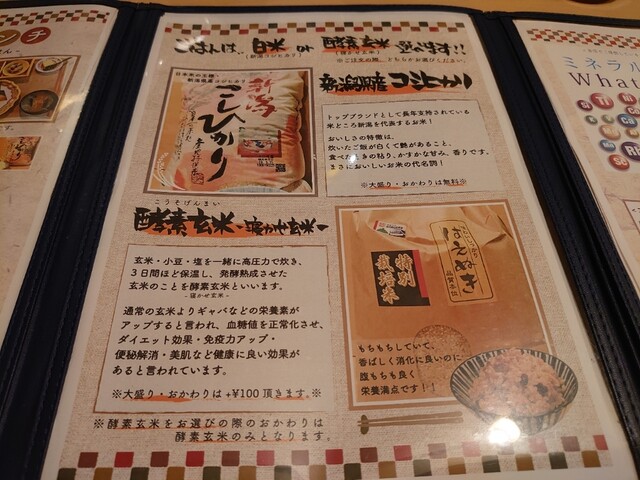 ンチ
ごはんは、白米 or 酵素玄米 選べます!!
(新潟コシヒカリ)
(寝かせ玄米)
※ご注文の際、どちらかお選びください。
日本米の王様・
新潟県産コシヒカリ
新潟
こしひかり
新潟県産 コシヒカリ
トップブランドとして長年支持されている
米どころ新潟を代表するお米！
おいしさの特徴は、
炊いたご飯が白くて艶があること、
食べたときの粘り、かすかな甘み、香りです。
まさにおいしいお米の代名詞！
※大盛り・おかわりは無料※
こうそげんまい
酵素玄米・寝かせ玄米
玄米・小豆・塩を一緒に高圧力で炊き、
３日間ほど保温し、発酵熟成させた
玄米のことを酵素玄米といいます。
-寝かせ玄米-
通常の玄米よりギャバなどの栄養素が
アップすると言われ、血糖値を正常化させ、
ダイエット効果・免疫力アップ・
便秘解消・美肌など健康に良い効果が
あると言われています。
※大盛り・おかわりは +¥100 頂きます。※
※酵素玄米をお選びの際のおかわりは
酵素玄米のみとなります。
はえぬき
品質本位
特別
栽培米
もちもちしていて、
香ばしく消化に良いのに
腹もちも良く
栄養満点です！！
ミネラル
What